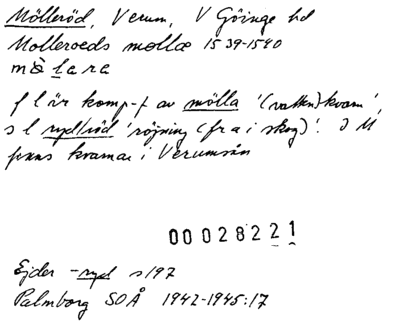 Mölleröd, Verum, V Göinge hd
Molleroeds mollæ 1539-1540
målara
f l är komp-f av mölla '(vatten)kvarn',
s l ryd/röd 'röjning (fr a i skog)'. I M
finns kvarnar i Verumsån
00028221
Ejder -ryd s197
Palmborg SOÅ 1942-1945:17